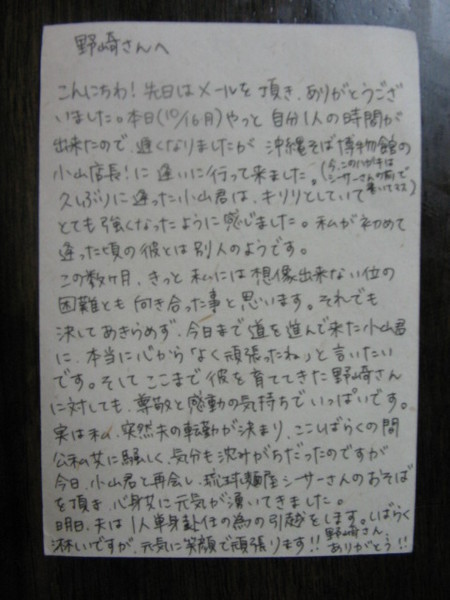 野崎さんへ
こんにちわ!先日はメールを頂き、ありがとうござ
いました。本日(10/16月)やっと自分1人の時間が
出来たので、遅くなりましたが 沖縄そば博物館の
小山店長!に逢いに行って来ました。(今、このハガキは
シーサーさんの前で
書いてます)
久しぶりに逢った小山君は、キリリとしていて
とても強くなったように感じました。私が初めて
逢った頃の彼とは別人のようです。
この数ヶ月、きっと私には想像出来ない位の
困難とも向き合った事と思います。それでも
決してあきらめず、今日まで道を進んで来た小山君
に、本当に心から「よく頑張ったね」と言いたい
です。そしてここまで彼を育ててきた野崎さん
に対しても、尊敬と感動の気持ちでいっぱいです。
実は私、突然夫の転勤が決まり、ここしばらくの間
公私共に騒しく、気分も沈みがちだったのですが
今日、小山君と再会し、琉球麺屋シーサーさんのおそば
を頂き、心身共に元気が湧いてきました。
明日、夫は1人単身赴任の為の引越をします。しばらく
淋しいですが、元気に笑顔で頑張ります!!野崎さん、
ありがとう!!